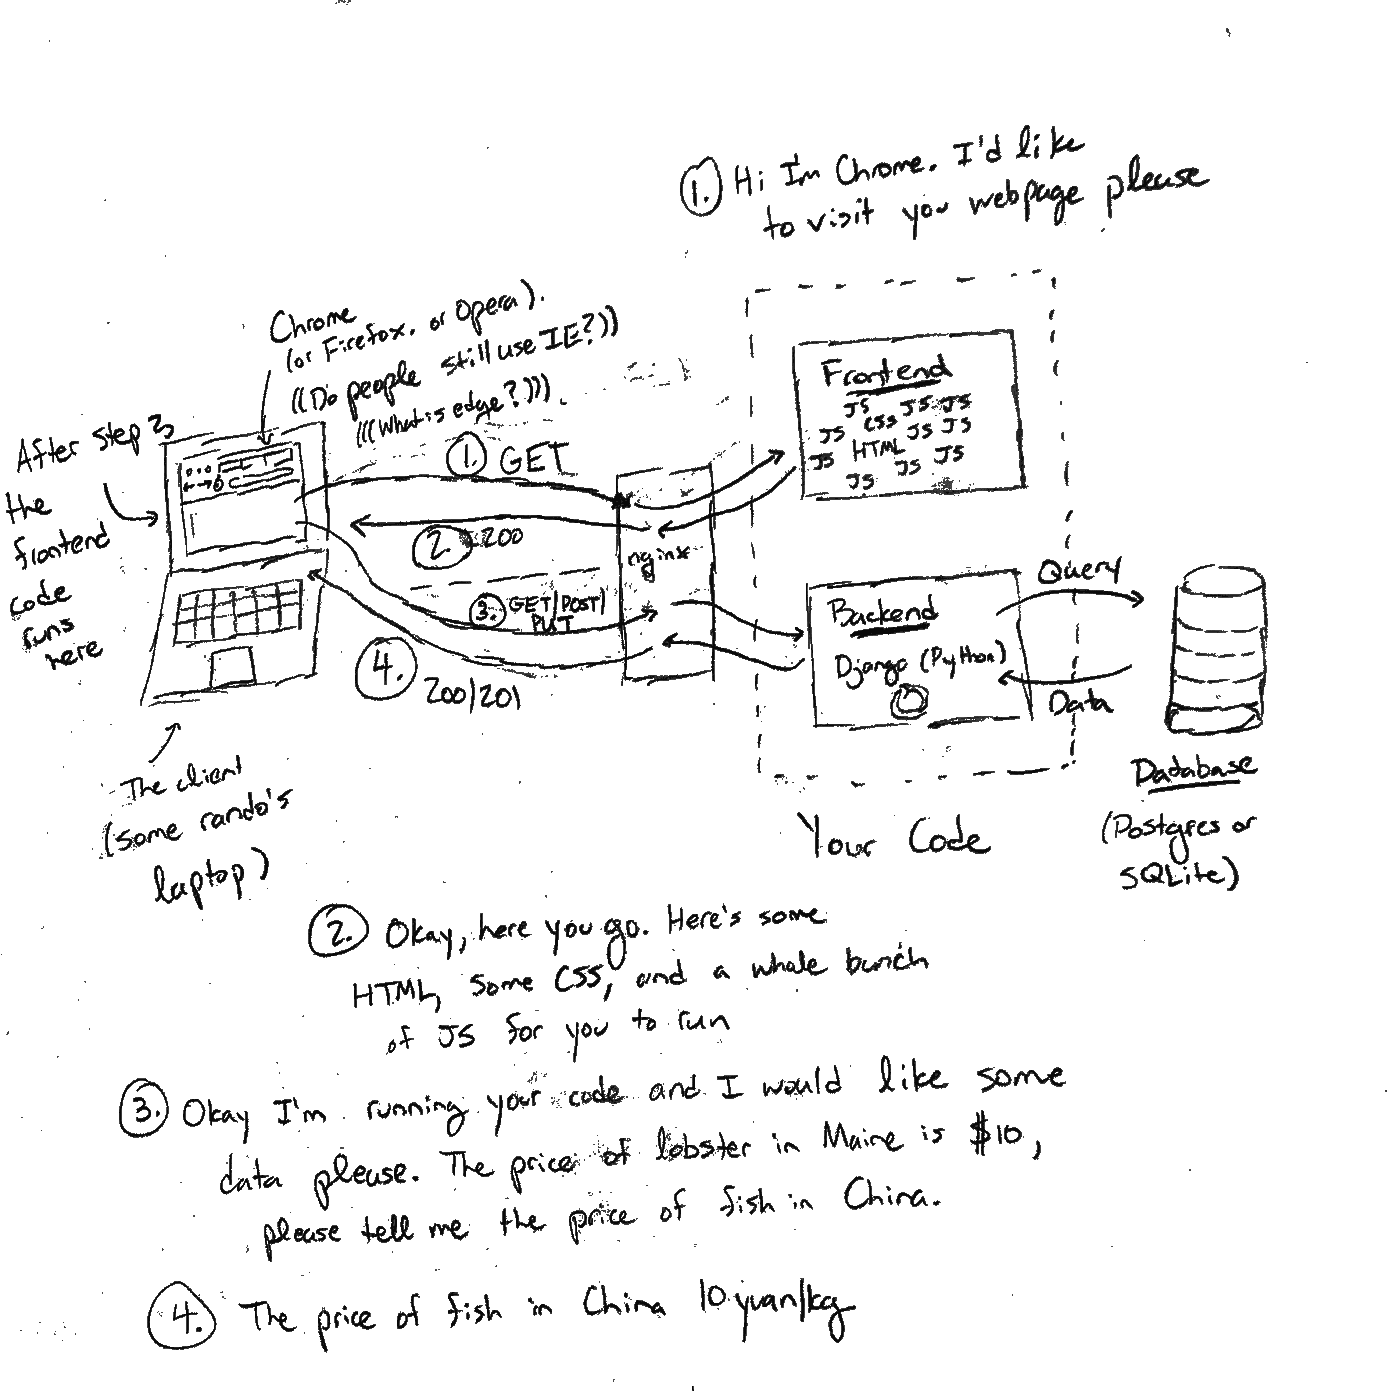 1. Hi I'm Chrome. I'd like
to visit you webpage please
Chrome
(or Firefox. or Opera).
((Do people still use IE?))
(((What is edge?))).
After step 2,
the
frontend
code
runs
here
1. GET
2. 200
3. GET/POST/
PUT
4.
200/201
nginx
Frontend
JS JS JS
JS CSS JS JS
JS HTML JS JS
JS
Backend
Django (Python)
Query
Data
Database
(Postgres or
SQLite)
Your Code
The client
(some rando's
laptop)
2. Okay, here you go. Here's some
HTML, some CSS, and a whale bunch
of JS for you to run
3. Okay I'm running your code and I would like some
data please. The price of lobster in Maine is $10,
please tell me the price of fish in China.
4. The price of fish in China 10 yuan/kg